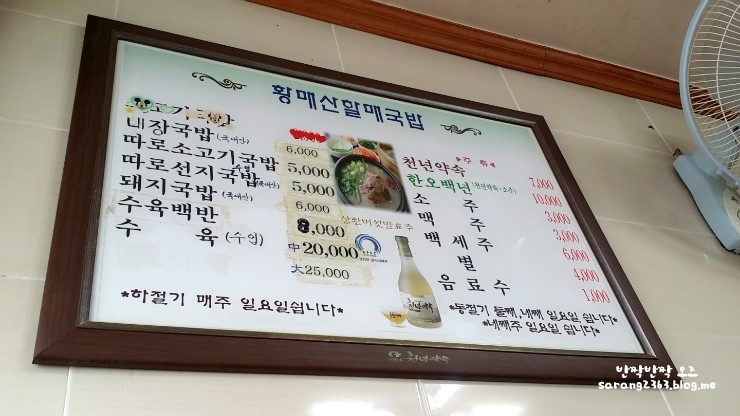 황매산할매국밥
내장국밥 (국내산) 6,000
따로소고기국밥 5,000
따로선지국밥 (국내산) 5,000
돼지국밥 (국내산) 6,000
수육백반 8,000
수 육 (수입) 中 20,000
大 25,000
*하절기 매주 일요일쉽니다*
*주 류*
천년약속 7,000
한오백년 (천년약속+소주) 10,000
소 주 3,000
맥 주 3,000
백 세 주 6,000
별 4,000
음료수 1,000
상황버섯발효주
*동절기 둘째,네째 일요일 쉽니다*
*네째주 일요일 쉽니다*
천년약속
반짝반짝 오즈
sarang2363.blog.me